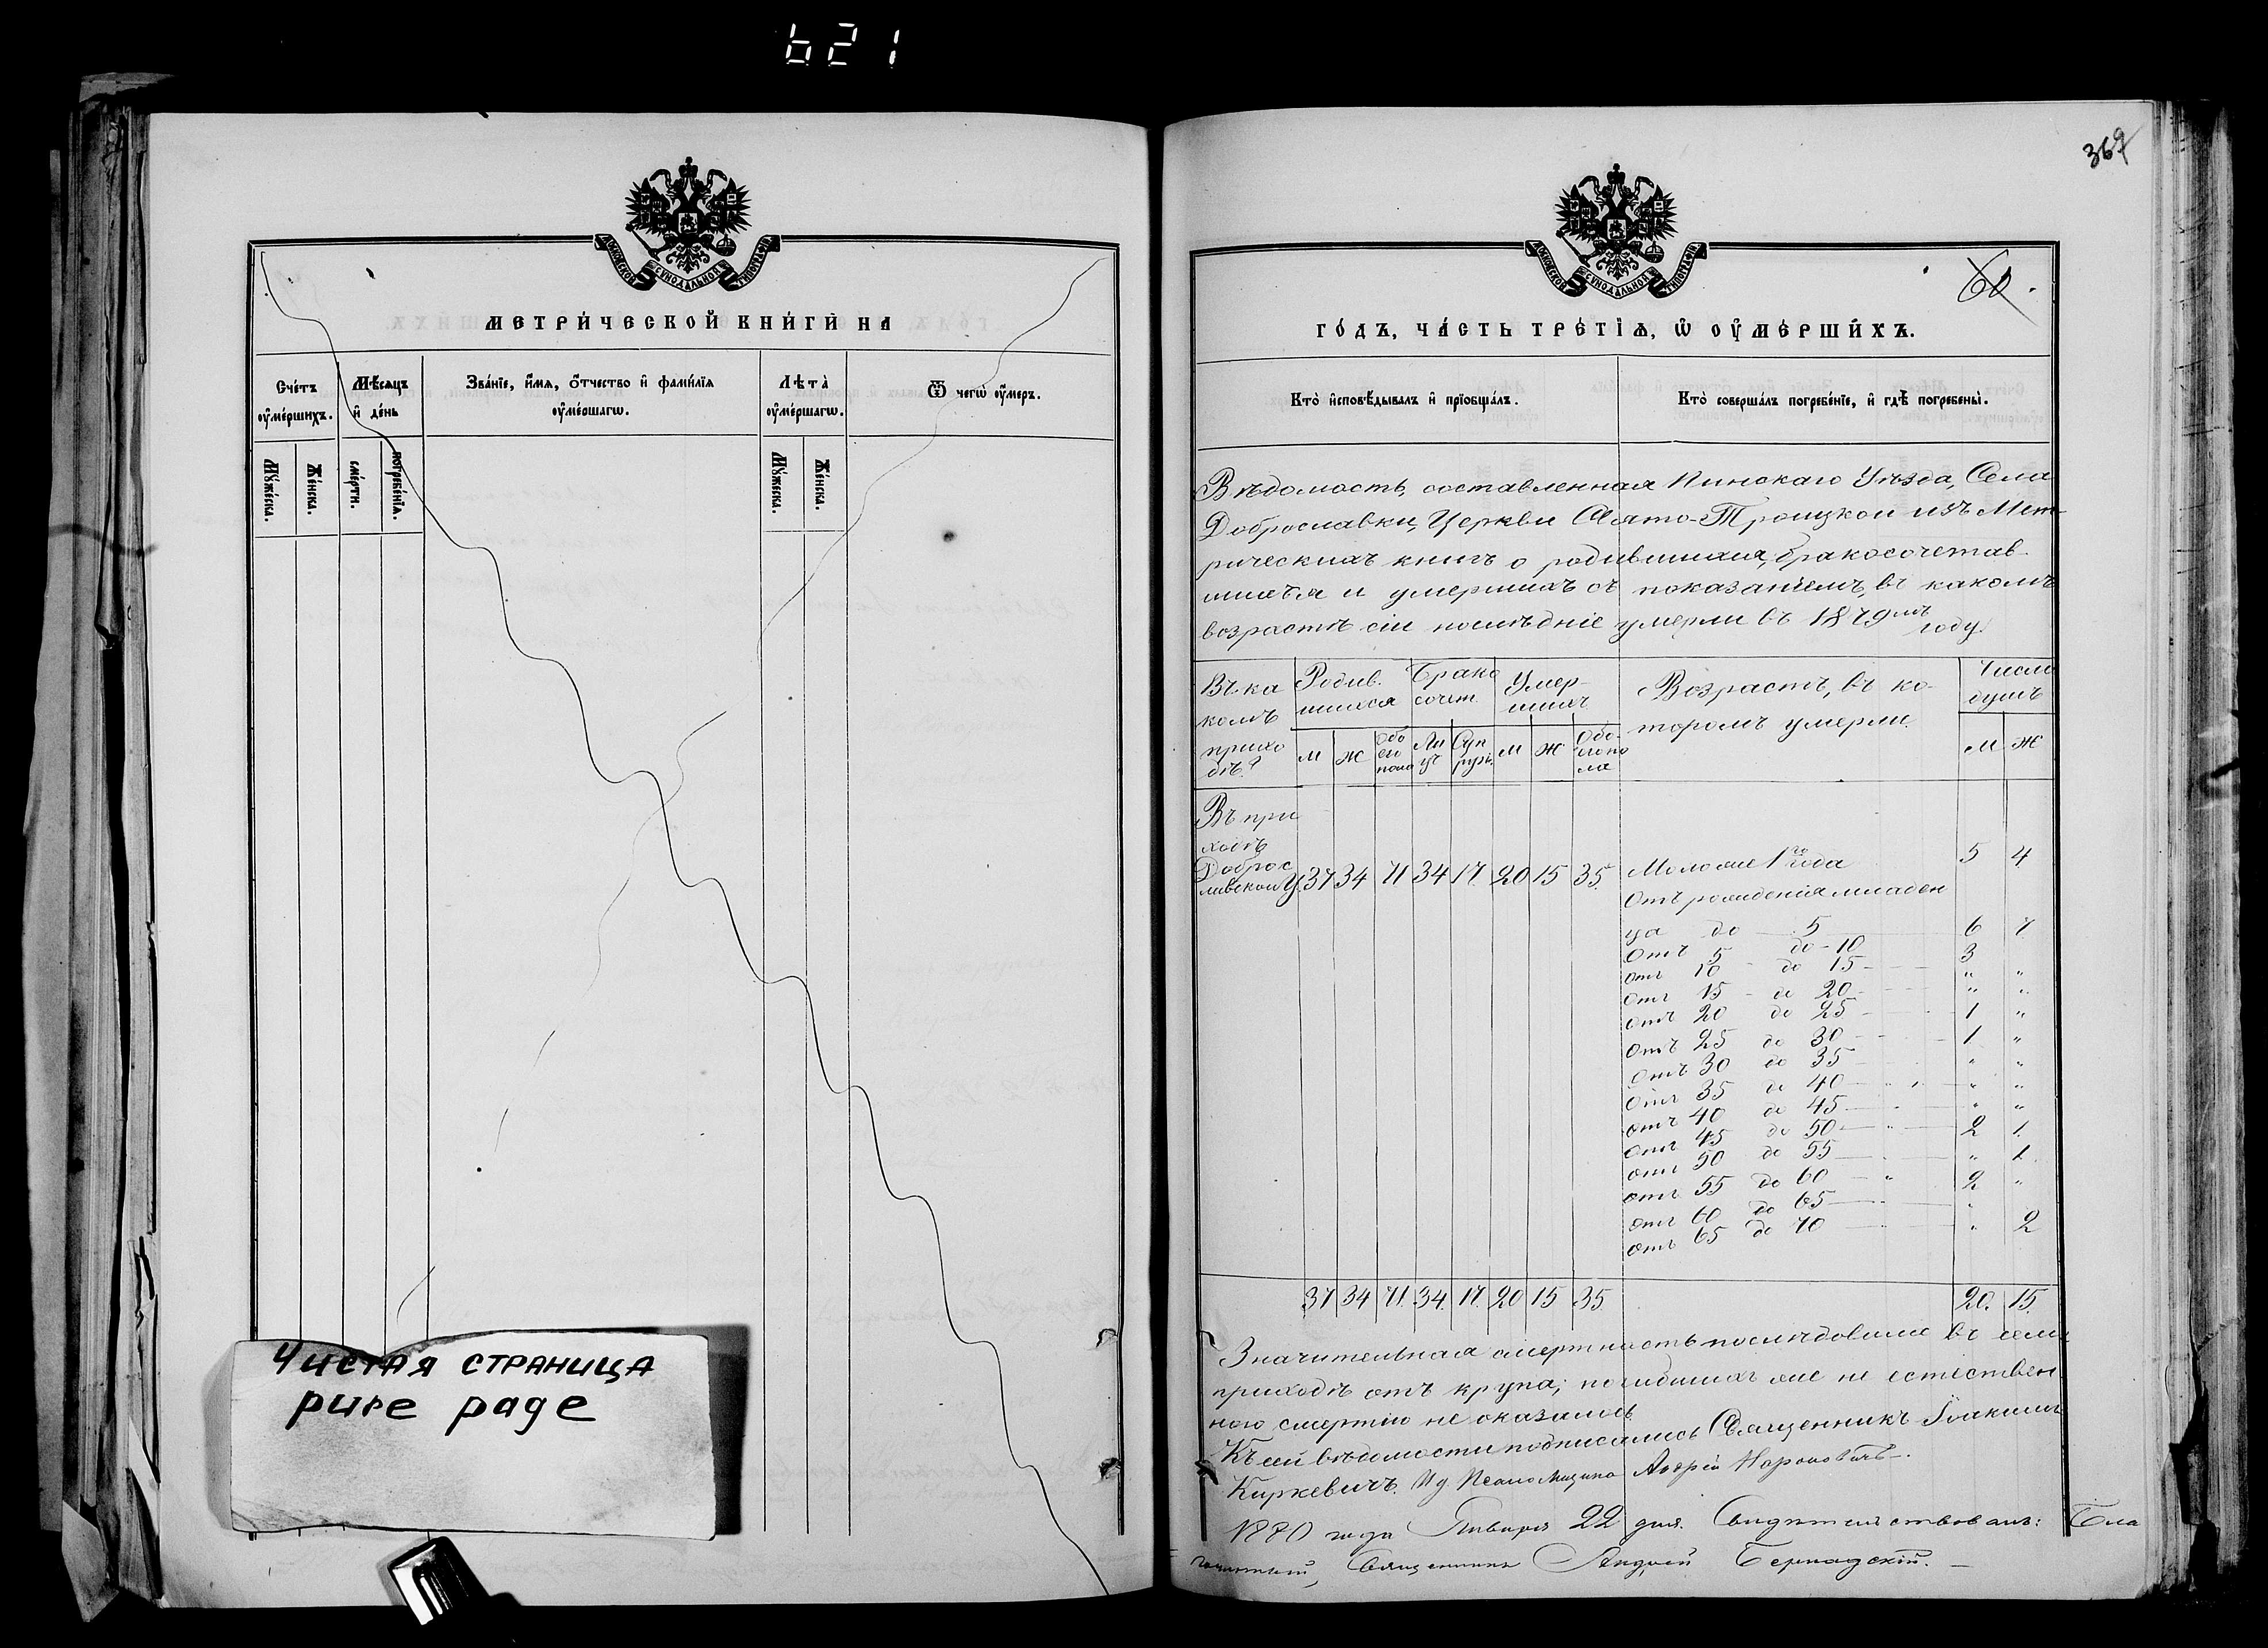 621
МОСКОВСКОЙ СѴНОДАЛЬНОЙ ТИПОГРАФІИ
МЕТРИ́ЧЕСКОЙ КНИ́ГИ НА
Сче́тъ оу҆ме́ршихъ.
Мѣ́сяцъ и҆ де́нь
Зва́нїе, и҆́мя, ѻ҆́тчество и҆ фами́лїя оу҆ме́ршагѡ.
Лѣта̀ оу҆ме́ршагѡ.
Ѿ чегѡ̀ оу҆́меръ.
Мꙋ́жеска.
Же́нска.
сме́рти.
погребе́нїя.
Мꙋ́жеска.
Же́нска.
Чистая страница
pure page
367
МОСКОВСКОЙ СѴНОДАЛЬНОЙ ТИПОГРАФІИ
60.
ГО́ДЪ, ЧА́СТЬ ТРЕ́ТЇѦ, Ѡ҆ ОУ҆МЕ́РШИХЪ.
Кто̀ и҆сповѣ́дывалъ и҆ прїобща́лъ.
Кто̀ соверша́лъ погребе́нїе, и҆ гдѣ̀ погребены̀.
Вѣдомость, составленная Пинскаго Уѣзда, Села
Доброславки, Церкви Свято-Троицкой изъ Мет-
рическихъ книгъ о родившихся, бракосочетав-
шихся и умершихъ съ показаніемъ, въ какомъ
возрастѣ сіи послѣдніе умерли въ 1879мъ году.
Въ ка
комъ
прихо
дѣ?
Родив.
шихся
Брако
сочет.
Умер-
шихъ
Возрастъ, въ ко-
торомъ умерли.
Число
душъ
М Ж Обо его пола Ли цъ Суп руж. М Ж Обо- его по ла
М Ж
Въ при
ходѣ
Доброс
лавском 37 34 71 34 17 20 15 35. Моложе 1го года 5 4
Отъ рожденія младен
ца до 5 6 7
Отъ 5 до 10 3
отъ 10 до 15 " "
Отъ 15 до 20 " "
отъ 20 до 25 1 "
Отъ 25 до 30 1 "
Отъ 30 до 35 " "
Отъ 35 до 40 " "
отъ 40 до 45 " "
Отъ 45 до 50 2 1
отъ 50 до 55 " 1
отъ 55 до 60 2 "
отъ 60 до 65 "
отъ 65 до 70 " 2
37 34 71 34 17 20 15 35 20. 15.
Значительная смертность послѣдовала въ семъ
приходѣ отъ крупа; погибшихъ же не естествен
ною смертію не оказалось
Къ сей вѣдомости подписались Священникъ Іоакимъ
Киркевичъ. И д Псаломщика Андрей
1880 года Января 22 дня. Свидѣтельствовалъ: Бла
гочинный, Священникъ Андрей